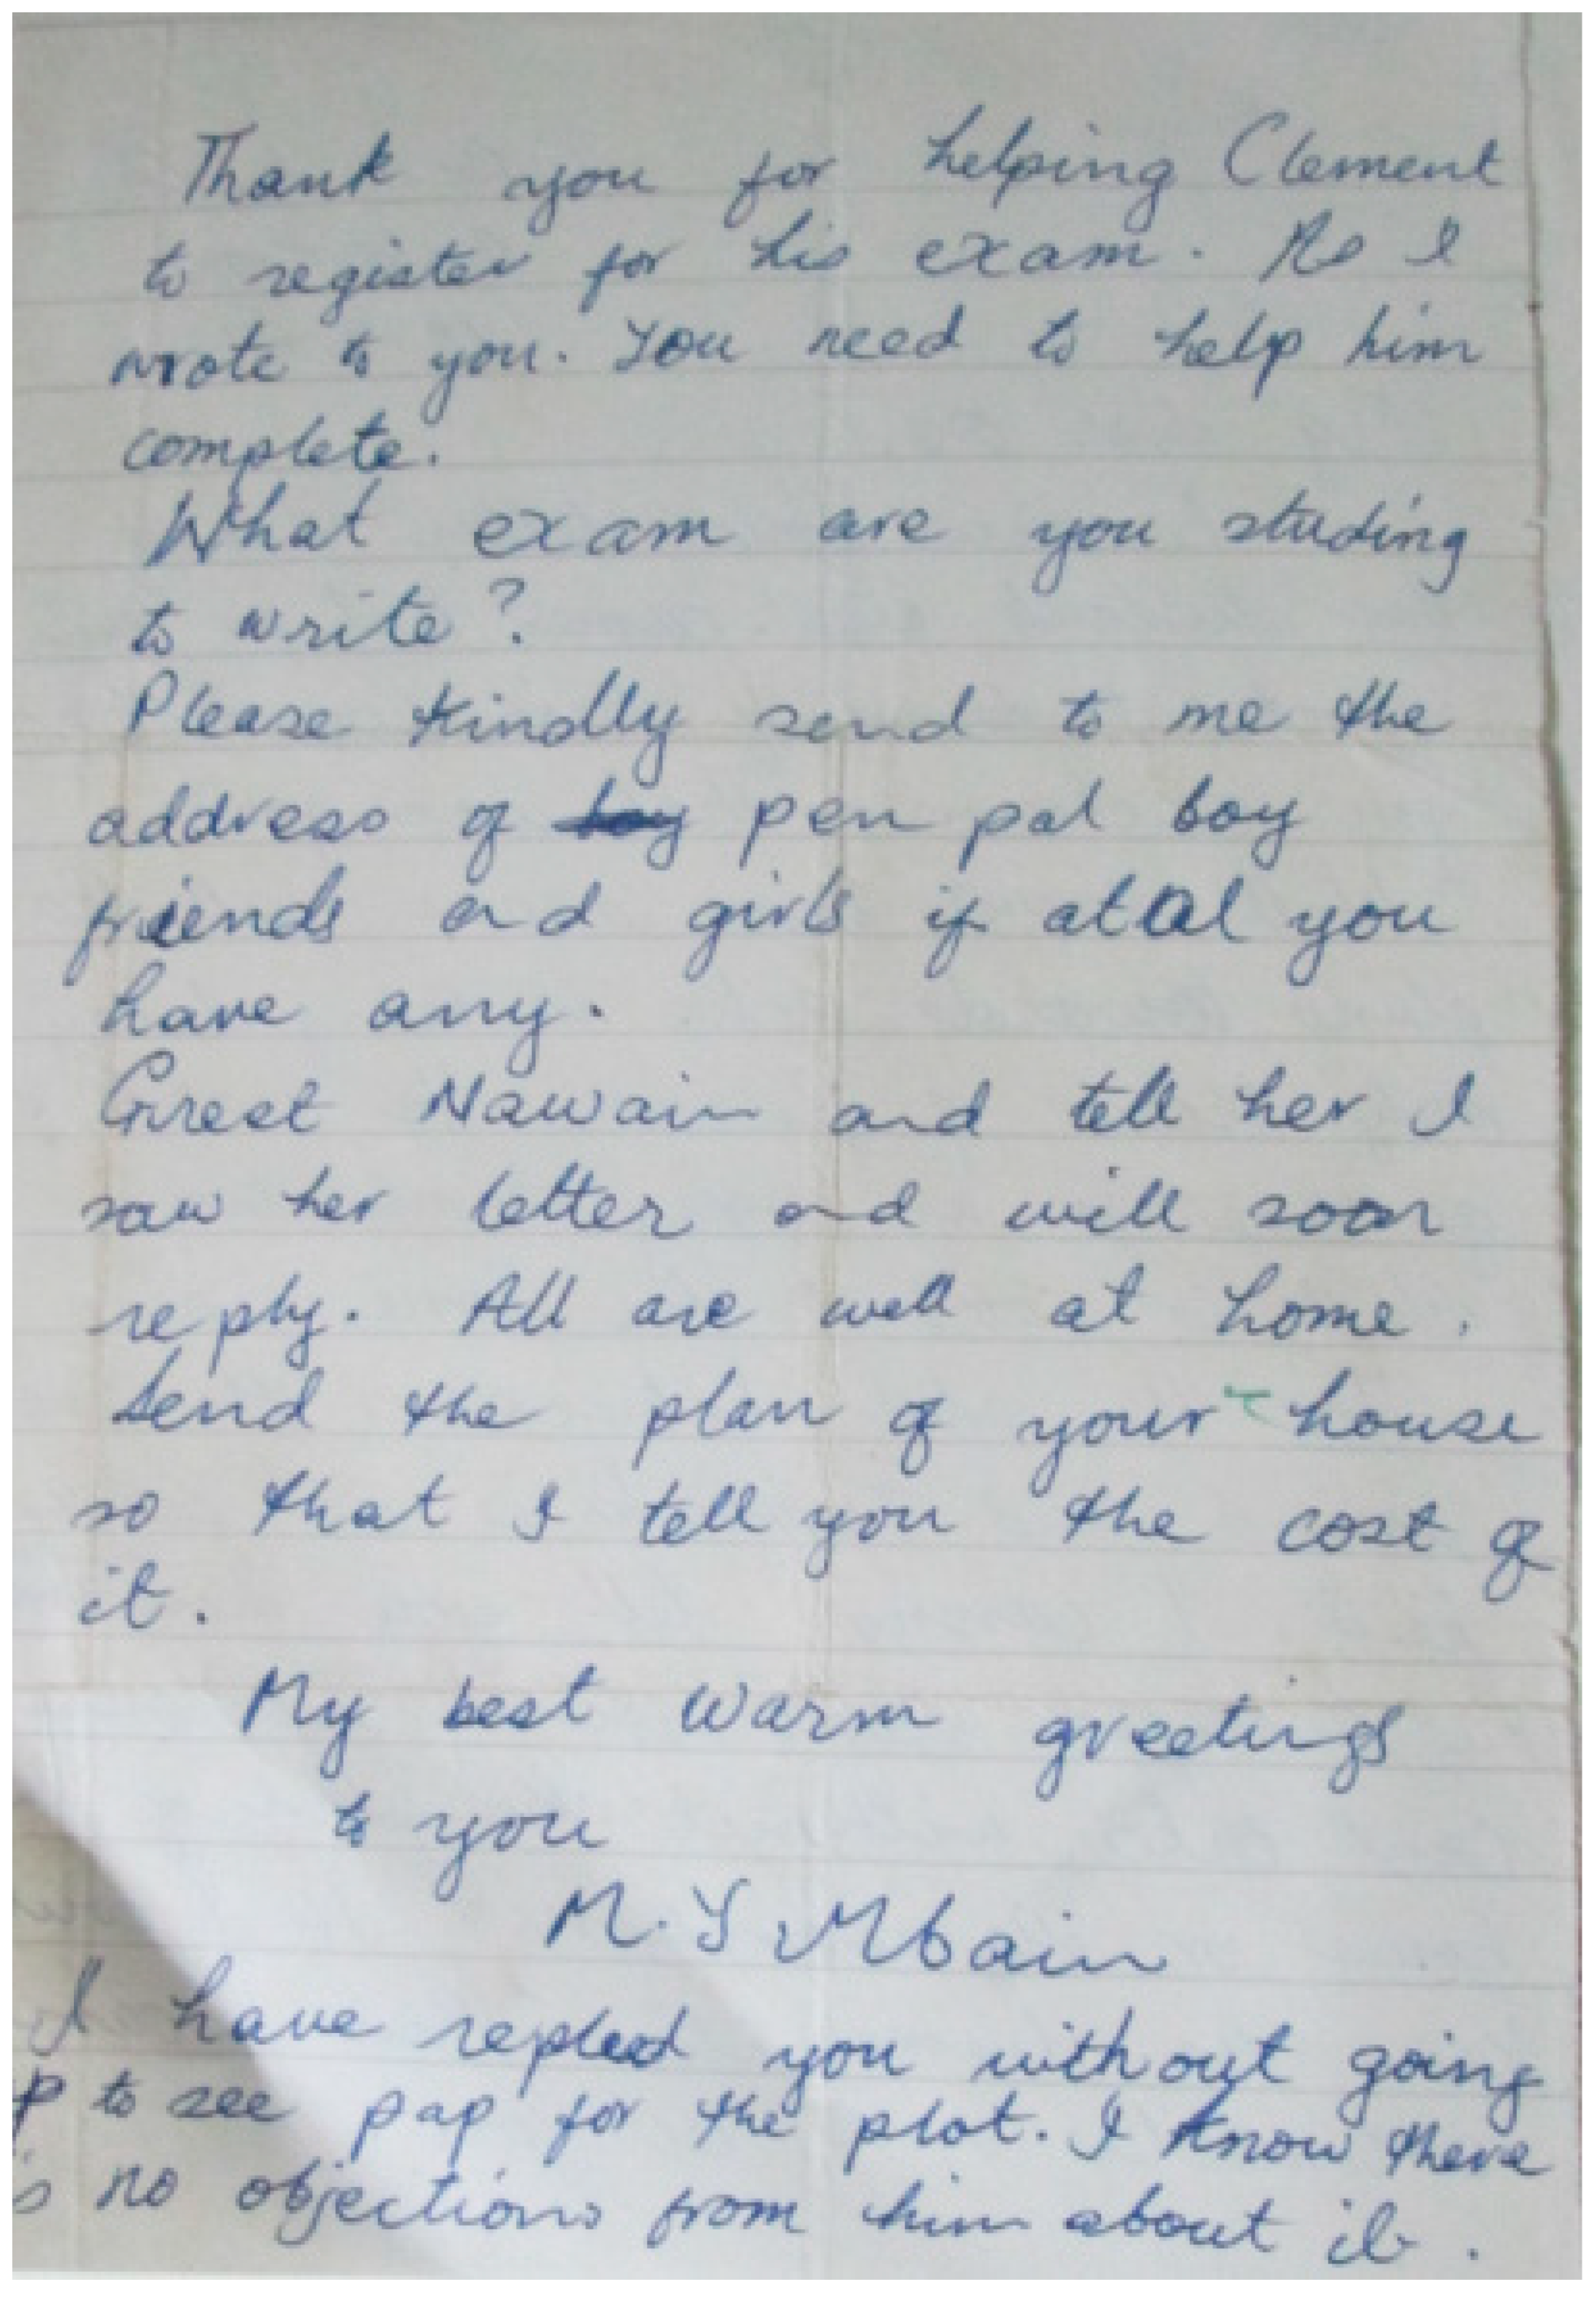 Thank you for helping Clement
to register for his exam. As I
wrote to you. You need to help him
complete.
What exam are you studing
to write?
Please kindly send to me the
address of boy pen pal boy
friends and girls if atal you
have any.
Greet Nawain and tell her I
saw her letter and will soon
reply. All are well at home.
Send the plan of your house
so that I tell you the cost of
it.
My best warm greetings
to you
M. Y Mbain
I have repled you without going
up to see pap for the plot. I know there
is no objections from him about it.